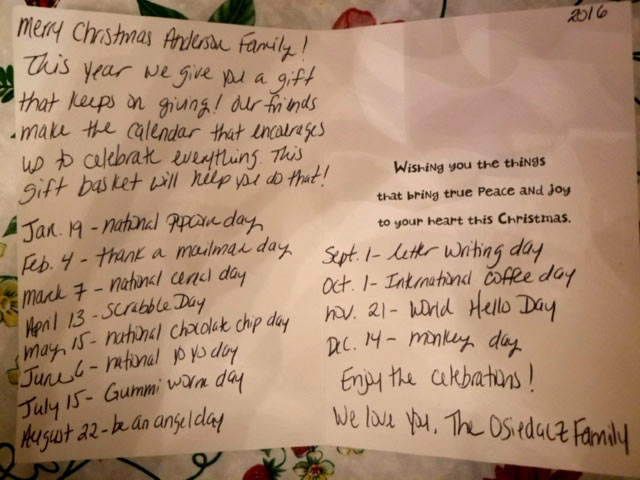 Merry Christmas Anderson Family!
This year we give you a gift
that keeps on giving! Our friends
make the calendar that encourages
us to celebrate everything. This
gift basket will help you do that!
Jan. 19 - national popcorn day
Feb. 4 - thank a mailman day
march 7 - national cereal day
April 13 - Scrabble Day
may 15 - national chocolate chip day
June 6 - national yo yo day
July 15 - Gummi worm day
August 22 - be an angel day
2016
Wishing you the things
that bring true Peace and Joy
to your heart this Christmas.
Sept. 1 - letter writing day
Oct. 1 - International coffee day
nov. 21 - World Hello Day
Dec. 14 - monkey day
Enjoy the celebrations!
We love you, The Osiedacz Family